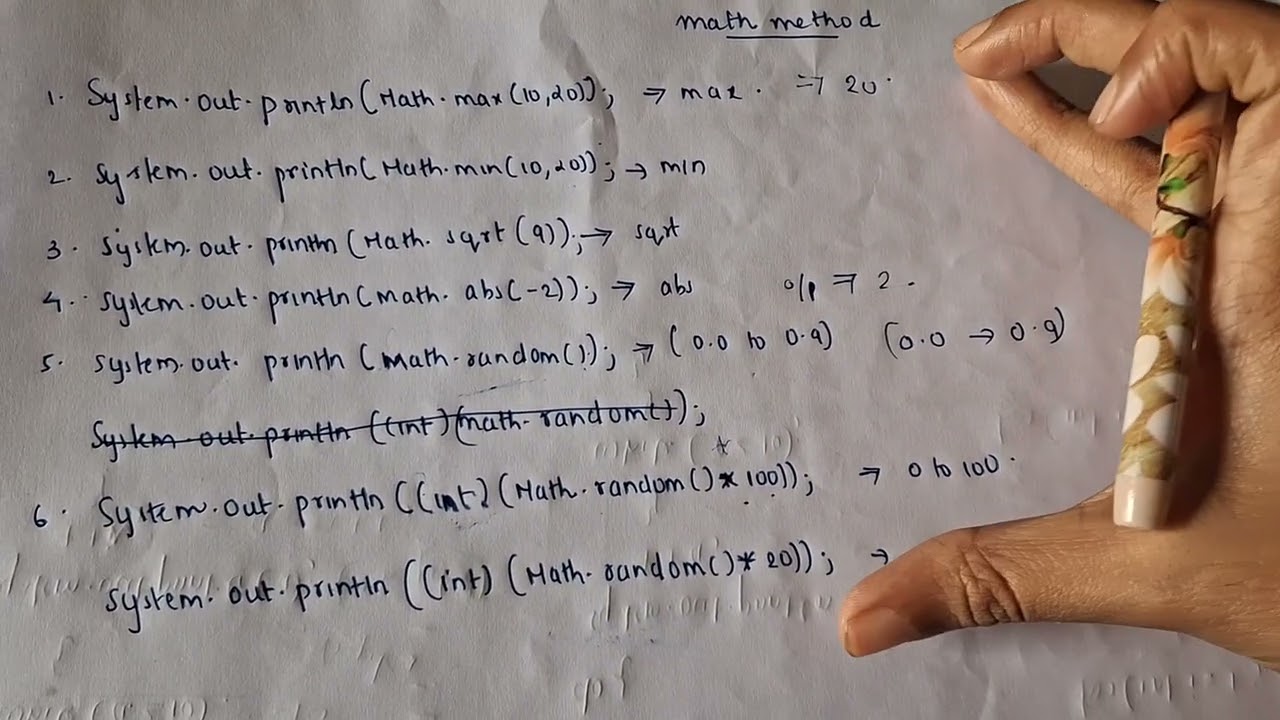 math method
1. System.out.println(Math.max(10,20)); ⇒ max. ⇒ 20.
2. System.out.println(Math.min(10,20)); → min
3. System.out.println(Math.sqrt(9)); → sqrt
4. System.out.println(math.abs(-2)); → abs o/p ⇒ 2.
5. System.out.println(math.random()); → (0.0 to 0.9) (0.0 → 0.9)
System.out.println((int)(math.random());
6. System.out.println((int)(Math.random()*100)); ⇒ 0 to 100.
System.out.println((int)(Math.random()*20)); →